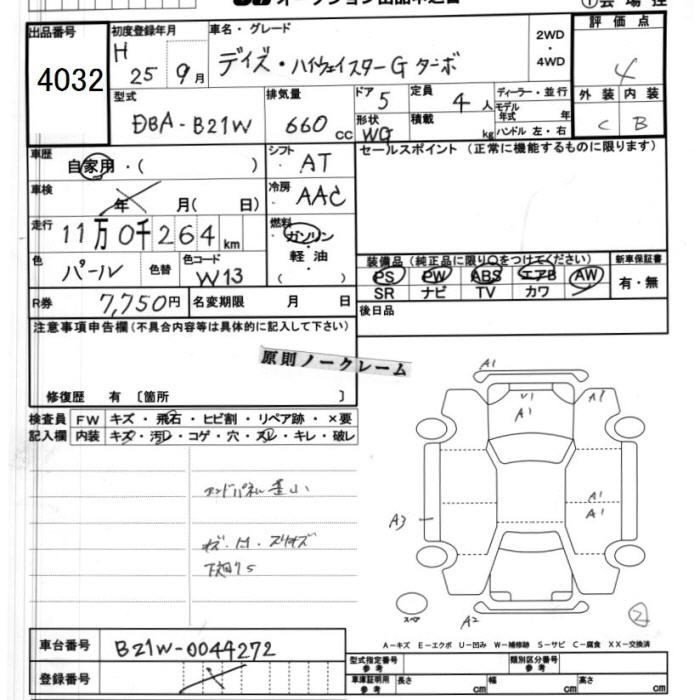 出品番号
4032
初度登録年月
H 25年 9月
車名・グレード
デイズ・ハイウェイスターG ターボ
2WD
・
4WD
評価点
4
型式
DBA-B21W
排気量
660 cc
ドア 5
形状 WG
定員 4人
積載 kg
ディーラー・並行
モデル年式 年
ハンドル 左・右
外装 内装
C B
車歴
自家用・( )
シフト
AT
車検
年 月( 日)
冷房
AAC
走行
11万0千264km
燃料
ガソリン
・
軽油
( )
色
パール
色替
色コード
W13
R券
7,750円
名変期限 月 日
セールスポイント (正常に機能するものに限ります)
装備品(純正品に限り○をつけてください)
PS PW ABS エアB AW
SR ナビ TV カワ
新車保証書
有・無
後日品
注意事項申告欄(不具合内容等は具体的に記入して下さい)
原則ノークレーム
修復歴 有 〔箇所 〕
検査員
記入欄
FW キズ・飛石・ヒビ割・リペア跡・×要
内装 キズ・汚レ・コゲ・穴・スレ・キレ・破レ
A1
A1
A1
A1
A1
A3
スペア
A2
2
車台番号
B21W-0044272
登録番号
A－キズ E－エクボ U－凹み W－補修跡 S－サビ C－腐食 XX－交換済
型式指定番号
参考
類別区分番号
参考
車庫証明用
参考
長さ cm
幅 cm
高さ cm